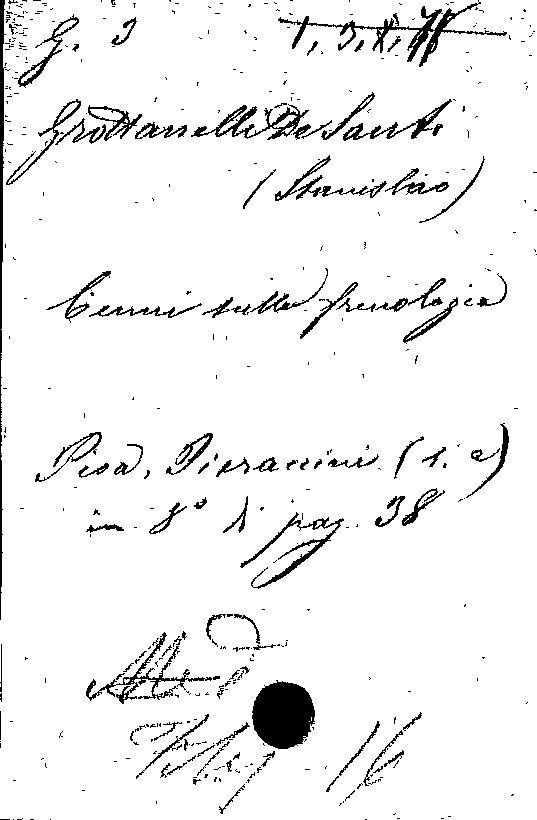 G. 3 1, 3, X,
Grottanelli De Santi
(Stanislao)
Cenni sulla frenologia
Pisa, Pieraccini (s. a)
in 8° di pag. 38
16